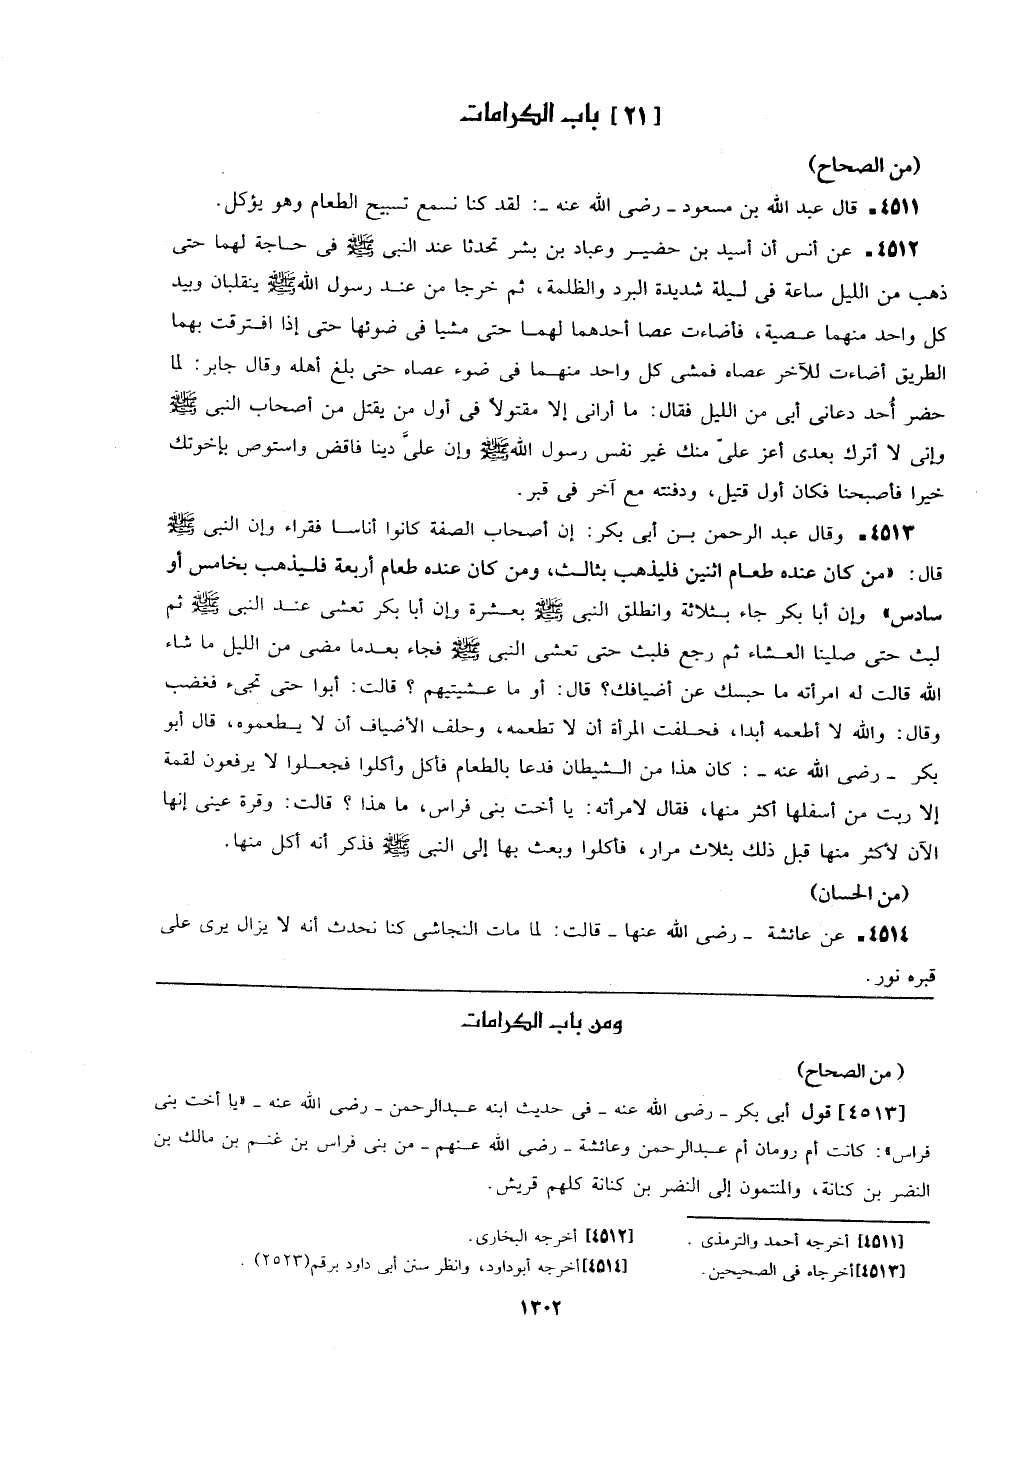 [٢١] باب الكرامات
(من الصحاح)
٤٥١١ـ قال عبد الله بن مسعود ـ رضى الله عنه ـ: لقد كنا نسمع تسبيح الطعام وهو يؤكل.
٤٥١٢ـ عن أنس أن أسيد بن حضير وعباد بن بشر تحدثا عند النبى ﷺ فى حاجة لهما حتى
ذهب من الليل ساعة فى ليلة شديدة البرد والظلمة، ثم خرجا من عند رسول الله ﷺ ينقلبان وبيد
كل واحد منهما عصية، فأضاءت عصا أحدهما لهما حتى مشيا فى ضوئها حتى إذا افترقت بهما
الطريق أضاءت للآخر عصاه فمشى كل واحد منهما فى ضوء عصاه حتى بلغ أهله وقال جابر: لما
حضر أُحد دعانى أبى من الليل فقال: ما أرانى إلا مقتولاً فى أول من يقتل من أصحاب النبى ﷺ
وإنى لا أترك بعدى أعز علىّ منك غير نفس رسول الله ﷺ وإن علىَّ دينا فاقض واستوص بإخوتك
خيرا فأصبحنا فكان أول قتيل، ودفنته مع آخر فى قبر.
٤٥١٣ـ وقال عبد الرحمن بن أبى بكر: إن أصحاب الصفة كانوا أناسا فقراء وإن النبى ﷺ
قال: «من كان عنده طعام اثنين فليذهب بثالث، ومن كان عنده طعام أربعة فليذهب بخامس أو
سادس» وإن أبا بكر جاء بثلاثة وانطلق النبى ﷺ بعشرة وإن أبا بكر تعشى عند النبى ﷺ ثم
لبث حتى صلينا العشاء ثم رجع فلبث حتى تعشى النبى ﷺ فجاء بعدما مضى من الليل ما شاء
الله قالت له امرأته ما حبسك عن أضيافك؟ قال: أو ما عشيتيهم ؟ قالت: أبوا حتى تجىء فغضب
وقال: والله لا أطعمه أبدا، فحلفت المرأة أن لا تطعمه، وحلف الأضياف أن لا يطعموه، قال أبو
بكر ـ رضى الله عنه ـ : كان هذا من الشيطان فدعا بالطعام فأكل وأكلوا فجعلوا لا يرفعون لقمة
إلا ربت من أسفلها أكثر منها، فقال لامرأته: يا أخت بنى فراس، ما هذا ؟ قالت: وقرة عينى إنها
الآن لأكثر منها قبل ذلك بثلاث مرار، فأكلوا وبعث بها إلى النبى ﷺ فذكر أنه أكل منها.
(من الحسان)
٤٥١٤ـ عن عائشة ـ رضى الله عنها ـ قالت: لما مات النجاشى كنا نحدث أنه لا يزال يرى على
قبره نور.
ومن باب الكرامات
(من الصحاح)
[٤٥١٣] قول أبى بكر ـ رضى الله عنه ـ فى حديث ابنه عبدالرحمن ـ رضى الله عنه ـ «يا أخت بنى
فراس»: كانت أم رومان أم عبدالرحمن وعائشة ـ رضى الله عنهم ـ من بنى فراس بن غنم بن مالك بن
النضر بن كنانة، والمنتمون إلى النضر بن كنانة كلهم قريش.
[٤٥١١] أخرجه أحمد والترمذى . [٤٥١٢] أخرجه البخارى.
[٤٥١٣] أخرجاه فى الصحيحين. [٤٥١٤] أخرجه أبوداود، وانظر سنن أبى داود برقم(٢٥٢٣) .
١٣٠٢